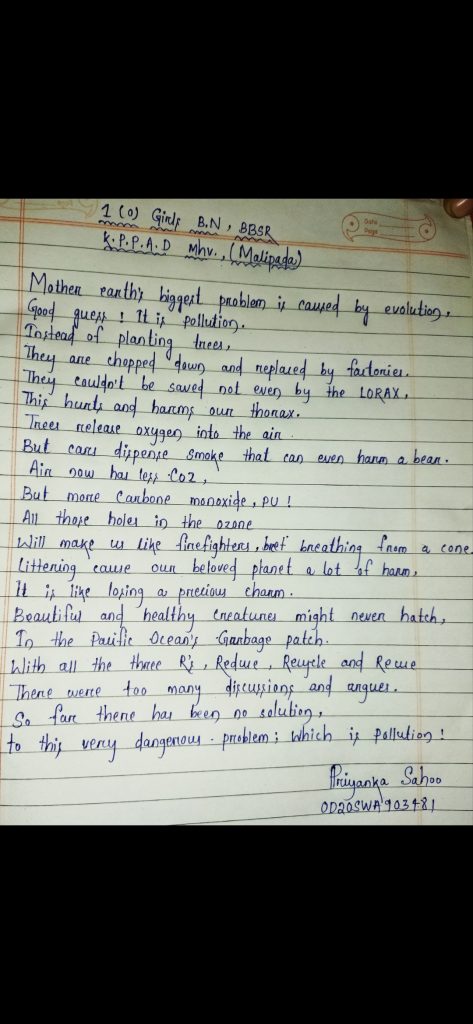 1 (O) Girls B.N, BBSR
K.P.P.A.D Mhv., (Malipada)
Date
Page
Mother earth's biggest problem is caused by evolution,
Good guess! It is pollution.
Instead of planting trees,
They are chopped down and replaced by factories.
They couldn't be saved not even by the LORAX,
This hurts and harms our thorax.
Trees release oxygen into the air
But cars dispense smoke that can even harm a bear.
Air now has less CO2,
But more Carbone monoxide, PU!
All those holes in the ozone
Will make us like firefighters, breathing from a cone.
Littering cause our beloved planet a lot of harm,
It is like losing a precious charm.
Beautiful and healthy creatures might never hatch,
In the Pacific Ocean's Garbage patch.
With all the three R's, Reduce, Recycle and Reuse
There were too many discussions and argues.
So far there has been no solution,
to this very dangerous problem; which is pollution!
Priyanka Sahoo
OD20SWA903481